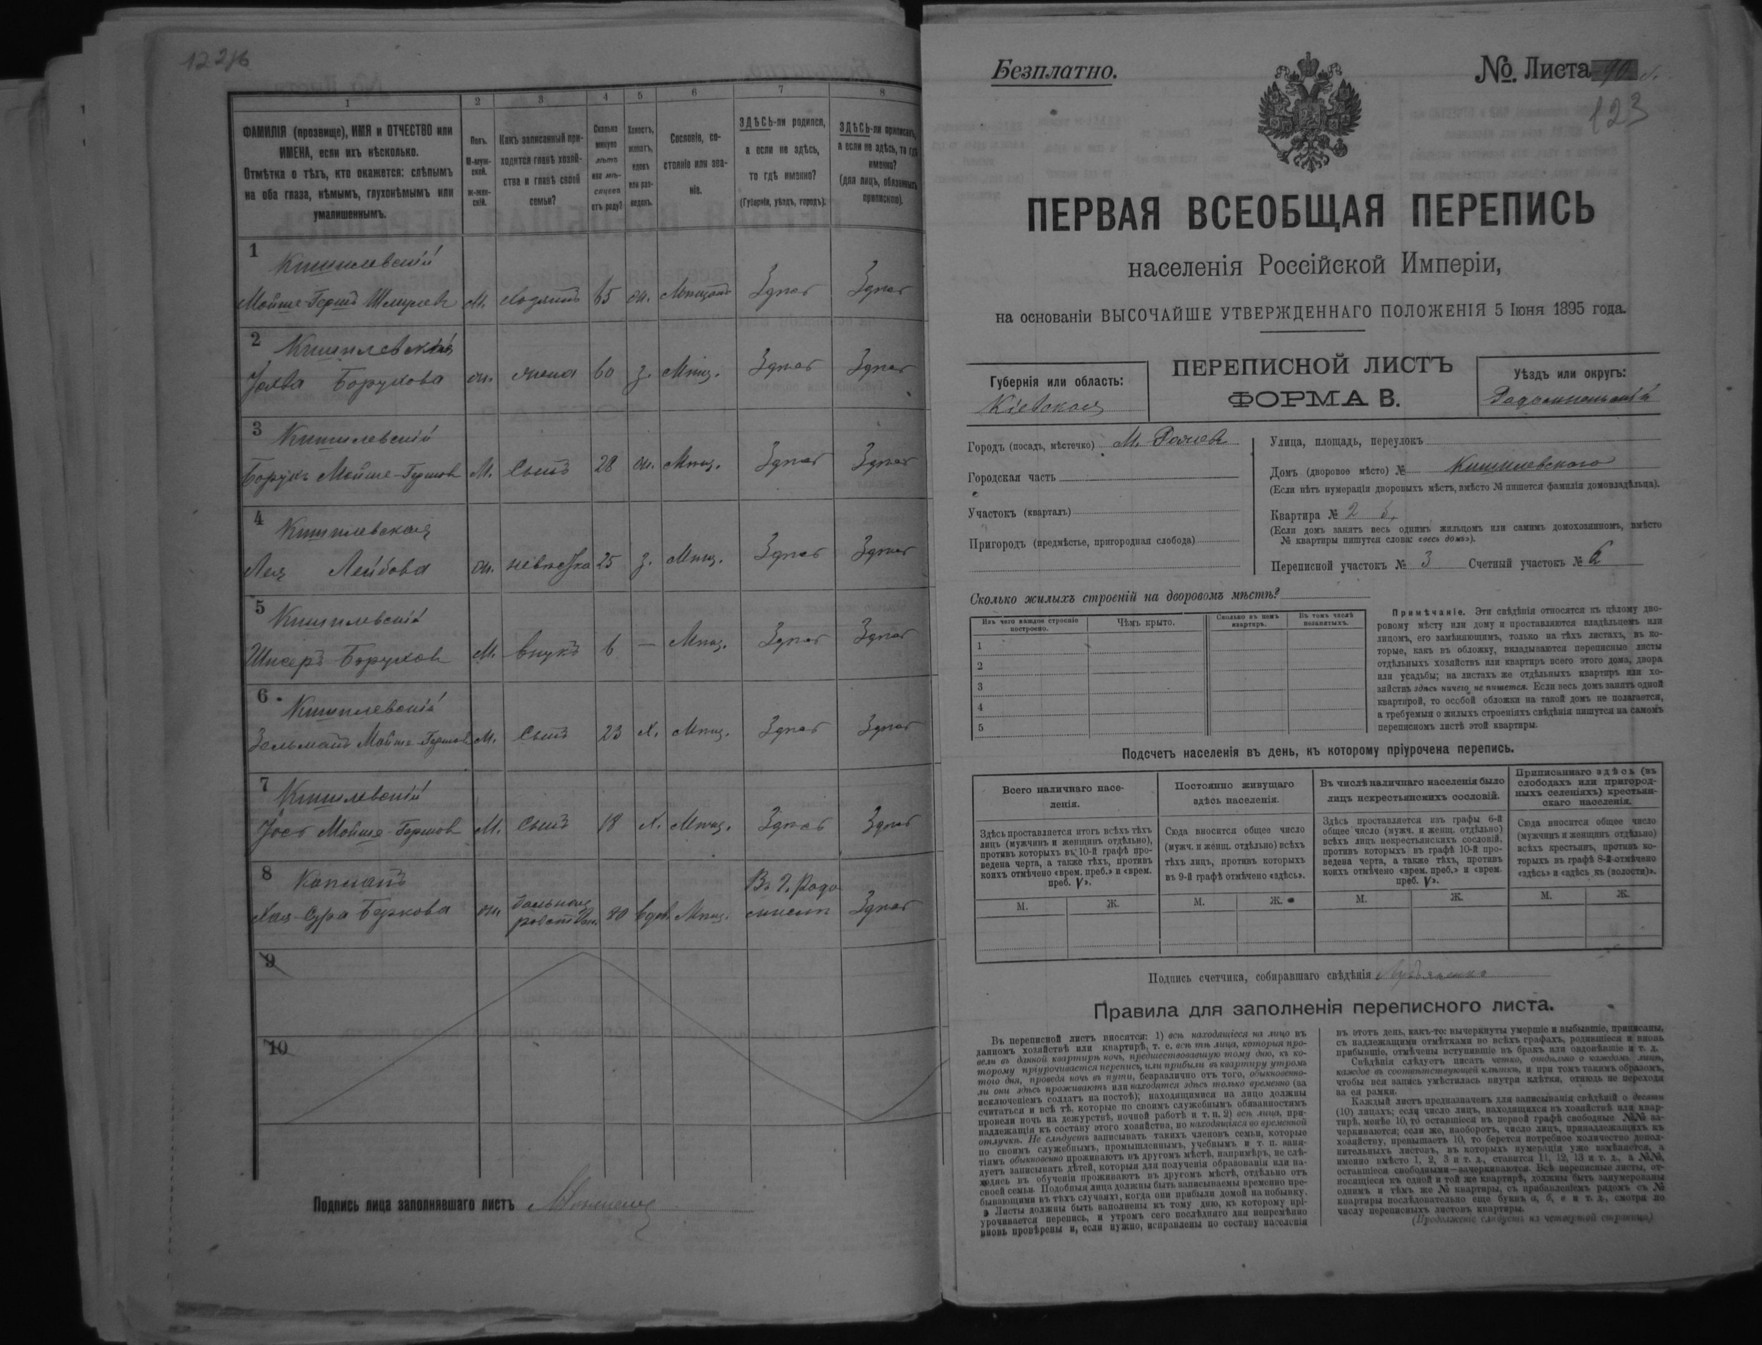 1
2
3
4
5
6
7
8
ФАМИЛІЯ (прозвище), ИМЯ и ОТЧЕСТВО или
ИМЕНА, если ихъ нѣсколько.
Отмѣтка о тѣхъ, кто окажется: слѣпымъ
на оба глаза, нѣмымъ, глухонѣмымъ или
умалишеннымъ.
Полъ.
М-муж-
ской.
ж-жен-
скій.
Какъ записанный при-
ходится главѣ хозяй-
ства и главѣ своей
семьи?
Сколько
минуло
лѣтъ
или мѣ-
сяцевъ
отъ роду?
Холостъ,
женатъ,
вдовъ
или раз-
веденъ.
Сословіе, со-
стояніе или зва-
ніе.
ЗДѢСЬ-ли родился,
а если не здѣсь,
то гдѣ именно?
(Губернія, уѣздъ, городъ).
ЗДѢСЬ-ли приписанъ,
а если не здѣсь, то гдѣ
именно?
(для лицъ, обязанныхъ
припискою).
1
Мойше-Гершъ
М. 65 Здѣсь Здѣсь
2
Борухова
60 Мѣщ. Здѣсь Здѣсь
3
Борухъ Мойше-Гершов
М. Сынъ 28 Мѣщ. Здѣсь Здѣсь
4
Лея Лейбова
невѣстка 25 Мѣщ. Здѣсь Здѣсь
5
Борухов
М. внукъ 6 — Мѣщ. Здѣсь Здѣсь
6
Зельманъ Мойше-Гершов
М. Сынъ 23 Х. Мѣщ. Здѣсь Здѣсь
7
Мойше-Гершов
М. Сынъ 18 Х. Мѣщ. Здѣсь Здѣсь
8
Хая-Сура Беркова
80 вдов. Мѣщ. Здѣсь
9
10
Подпись лица заполнявшаго листъ
Безплатно.
№. Листа
123
ПЕРВАЯ ВСЕОБЩАЯ ПЕРЕПИСЬ
населенія Россійской Имперіи,
на основаніи ВЫСОЧАЙШЕ УТВЕРЖДЕННАГО ПОЛОЖЕНІЯ 5 Іюня 1895 года.
Губернія или область:
Кіевская
ПЕРЕПИСНОЙ ЛИСТЪ
ФОРМА В.
Уѣздъ или округъ:
Радомысльскій
Городъ (посадъ, мѣстечко) М.
Городская часть
Участокъ (кварталъ)
Пригородъ (предмѣстье, пригородная слобода)
Улица, площадь, переулокъ
Домъ (дворовое мѣсто) №
(Если нѣтъ нумераціи дворовыхъ мѣстъ, вмѣсто № пишется фамилія домовладѣльца).
Квартира № 2
(Если домъ занятъ весь однимъ жильцомъ или самимъ домохозяиномъ, вмѣсто
№ квартиры пишутся слова: «весь домъ»).
Переписной участокъ № 3 Счетный участокъ № 6
Сколько жилыхъ строеній на дворовомъ мѣстѣ?
Изъ чего каждое строеніе
построено.
Чѣмъ крыто.
Сколько въ немъ
квартиръ.
Въ томъ числѣ
незанятыхъ.
1
2
3
4
5
Примѣчаніе. Эти свѣдѣнія относятся къ цѣлому дво-
ровому мѣсту или дому и проставляются владѣльцемъ или
лицомъ, его замѣняющимъ, только на тѣхъ листахъ, въ ко-
торые, какъ въ обложку, вкладываются переписные листы
отдѣльныхъ хозяйствъ или квартиръ всего этого дома, двора
или усадьбы; на листахъ же отдѣльныхъ квартиръ или хо-
зяйствъ здѣсь ничего не пишется. Если весь домъ занятъ одной
квартирой, то особой обложки на такой домъ не полагается,
а требуемыя о жилыхъ строеніяхъ свѣдѣнія пишутся на самомъ
переписномъ листѣ этой квартиры.
Подсчетъ населенія въ день, къ которому пріурочена перепись.
Всего наличнаго насе-
ленія.
Постоянно живущаго
здѣсь населенія.
Въ числѣ наличнаго населенія было
лицъ некрестьянскихъ сословій.
Приписаннаго здѣсь (въ
слободахъ или пригород-
ныхъ селеніяхъ) крестьян-
скаго населенія.
Здѣсь проставляется итогъ всѣхъ тѣхъ
лицъ (мужчинъ и женщинъ отдѣльно),
противъ которыхъ въ 10-й графѣ про-
ведена черта, а также тѣхъ, противъ
коихъ отмѣчено «врем. преб.» и «врем.
преб. V».
Сюда вносится общее число
(мужч. и женщ. отдѣльно) всѣхъ
тѣхъ лицъ, противъ которыхъ
въ 9-й графѣ отмѣчено «здѣсь».
Здѣсь проставляется изъ графы 6-й
общее число (мужч. и женщ. отдѣльно)
всѣхъ лицъ некрестьянскихъ сословій,
противъ которыхъ въ графѣ 10-й про-
ведена черта, а также тѣхъ, противъ
коихъ отмѣчено «врем. преб.» и «врем.
преб. V».
Сюда вносится общее число
(мужчинъ и женщинъ отдѣльно)
всѣхъ крестьянъ, противъ ко-
торыхъ въ графѣ 8-й отмѣчено
«здѣсь» и «здѣсь къ (волости)».
М. Ж. М. Ж. М. Ж. М. Ж.
Подпись счетчика, собиравшаго свѣдѣнія
Правила для заполненія переписного листа.
Въ переписной листъ вносятся: 1) всѣ находящіеся на лицо въ
данномъ хозяйствѣ или квартирѣ, т. е. всѣ тѣ лица, которыя про-
вели въ данной квартирѣ ночь, предшествовавшую тому дню, къ ко-
торому пріурочивается перепись, или прибыли въ квартиру утромъ
того дня, проведя ночь въ пути, безразлично отъ того, обыкновенно-
ли они здѣсь проживаютъ или находятся здѣсь только временно (за
исключеніемъ солдатъ на постоѣ); находящимися на лицо должны
считаться и всѣ тѣ, которые по своимъ служебнымъ обязанностямъ
провели ночь на дежурствѣ, ночной работѣ и т. п. 2) всѣ лица, при-
надлежащія къ составу этого хозяйства, но находящіяся во временной
отлучкѣ. Не слѣдуетъ записывать такихъ членовъ семьи, которые
по своимъ служебнымъ, промышленнымъ, учебнымъ и т. п. заня-
тіямъ обыкновенно проживаютъ въ другомъ мѣстѣ, напримѣръ, не слѣ-
дуетъ записывать дѣтей, которыя для полученія образованія или на-
ходясь въ обученіи проживаютъ въ другомъ мѣстѣ, отдѣльно отъ
своей семьи. Подобныя лица должны быть записываемы временно пре-
бывающими въ тѣхъ случаяхъ, когда они прибыли домой на побывку.
Листы должны быть заполнены къ тому дню, къ которому прі-
урочивается перепись, и утромъ сего послѣдняго дня непремѣнно
вновь провѣрены и, если нужно, исправлены по составу населенія
въ этотъ день, какъ-то: вычеркнуты умершіе и выбывшіе, приписаны,
съ надлежащими отмѣтками во всѣхъ графахъ, родившіеся и вновь
прибывшіе, отмѣчены вступившіе въ бракъ или овдовѣвшіе и т. д.
Свѣдѣнія слѣдуетъ писать четко, отдѣльно о каждомъ лицѣ,
каждое въ соотвѣтствующей клѣткѣ, и при томъ такимъ образомъ,
чтобы вся запись умѣстилась внутри клѣтки, отнюдь не переходя
за ея рамки.
Каждый листъ предназначенъ для записыванія свѣдѣній о десяти
(10) лицахъ; если число лицъ, находящихся въ хозяйствѣ или квар-
тирѣ, менѣе 10, то оставшіеся въ первой графѣ свободные №№ за-
черкиваются; если же, наоборотъ, число лицъ, принадлежащихъ къ
хозяйству, превышаетъ 10, то берется потребное количество допол-
нительныхъ листовъ, въ которыхъ нумерація уже измѣняется, а
именно вмѣсто 1, 2, 3 и т. д., ставится 11, 12, 13 и т. д., а №№,
оставшіеся свободными—зачеркиваются. Всѣ переписные листы, от-
носящіеся къ одной и той же квартирѣ, должны быть занумерованы
однимъ и тѣмъ же № квартиры, съ прибавленіемъ рядомъ съ №
квартиры послѣдовательно еще буквъ а, б, в и т. д., смотря по
числу переписныхъ листовъ квартиры.
(Продолженіе слѣдуетъ на четвертой страницѣ)